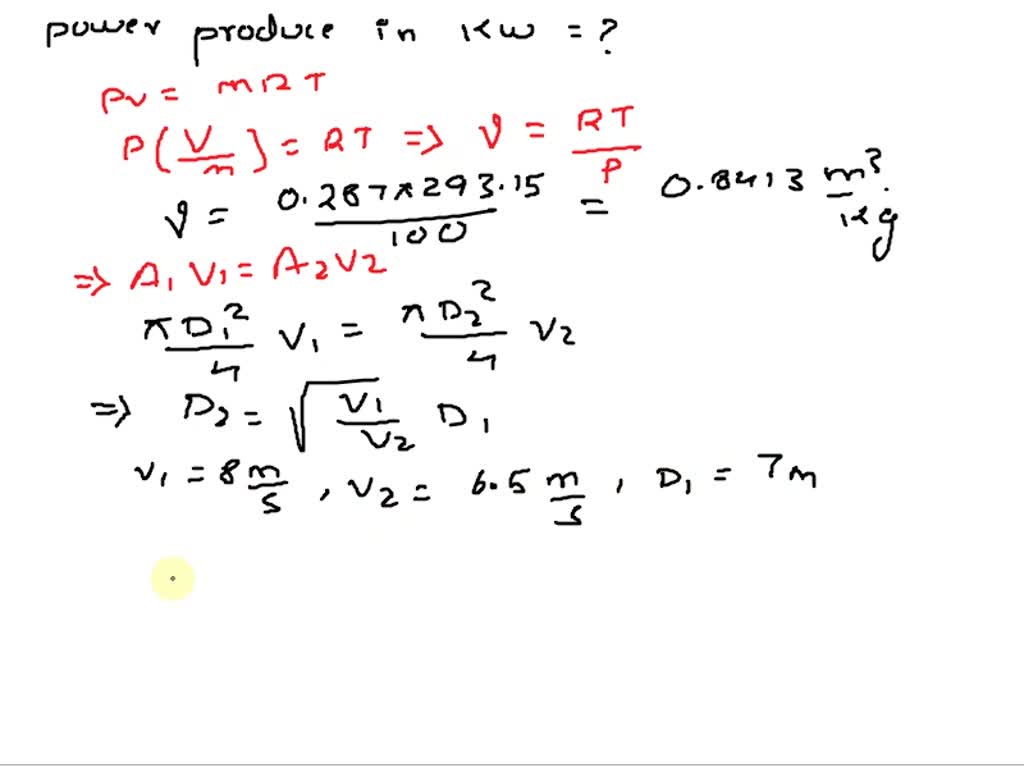 power produce in kw = ?
PV = mRT
P(V/m) = RT => ϑ = RT/P
ϑ = 0.287×293.15/100 = 0.8413 m³/kg
=> A₁V₁ = A₂V₂
πD₁²/4 V₁ = πD₂²/4 V₂
=> D₂ = √(V₁/V₂) D₁
V₁ = 8 m/s , V₂ = 6.5 m/s , D₁ = 7m